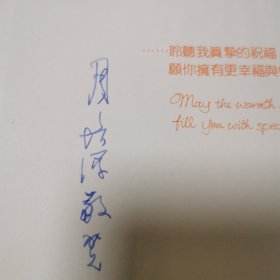 ……聆聽我真摯的祝福
願你擁有更幸福與
May the warmth
fill you with spec
周培源敬贺